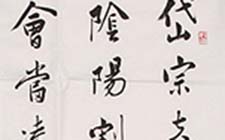 岱宗夫
陰陽割
會當凌